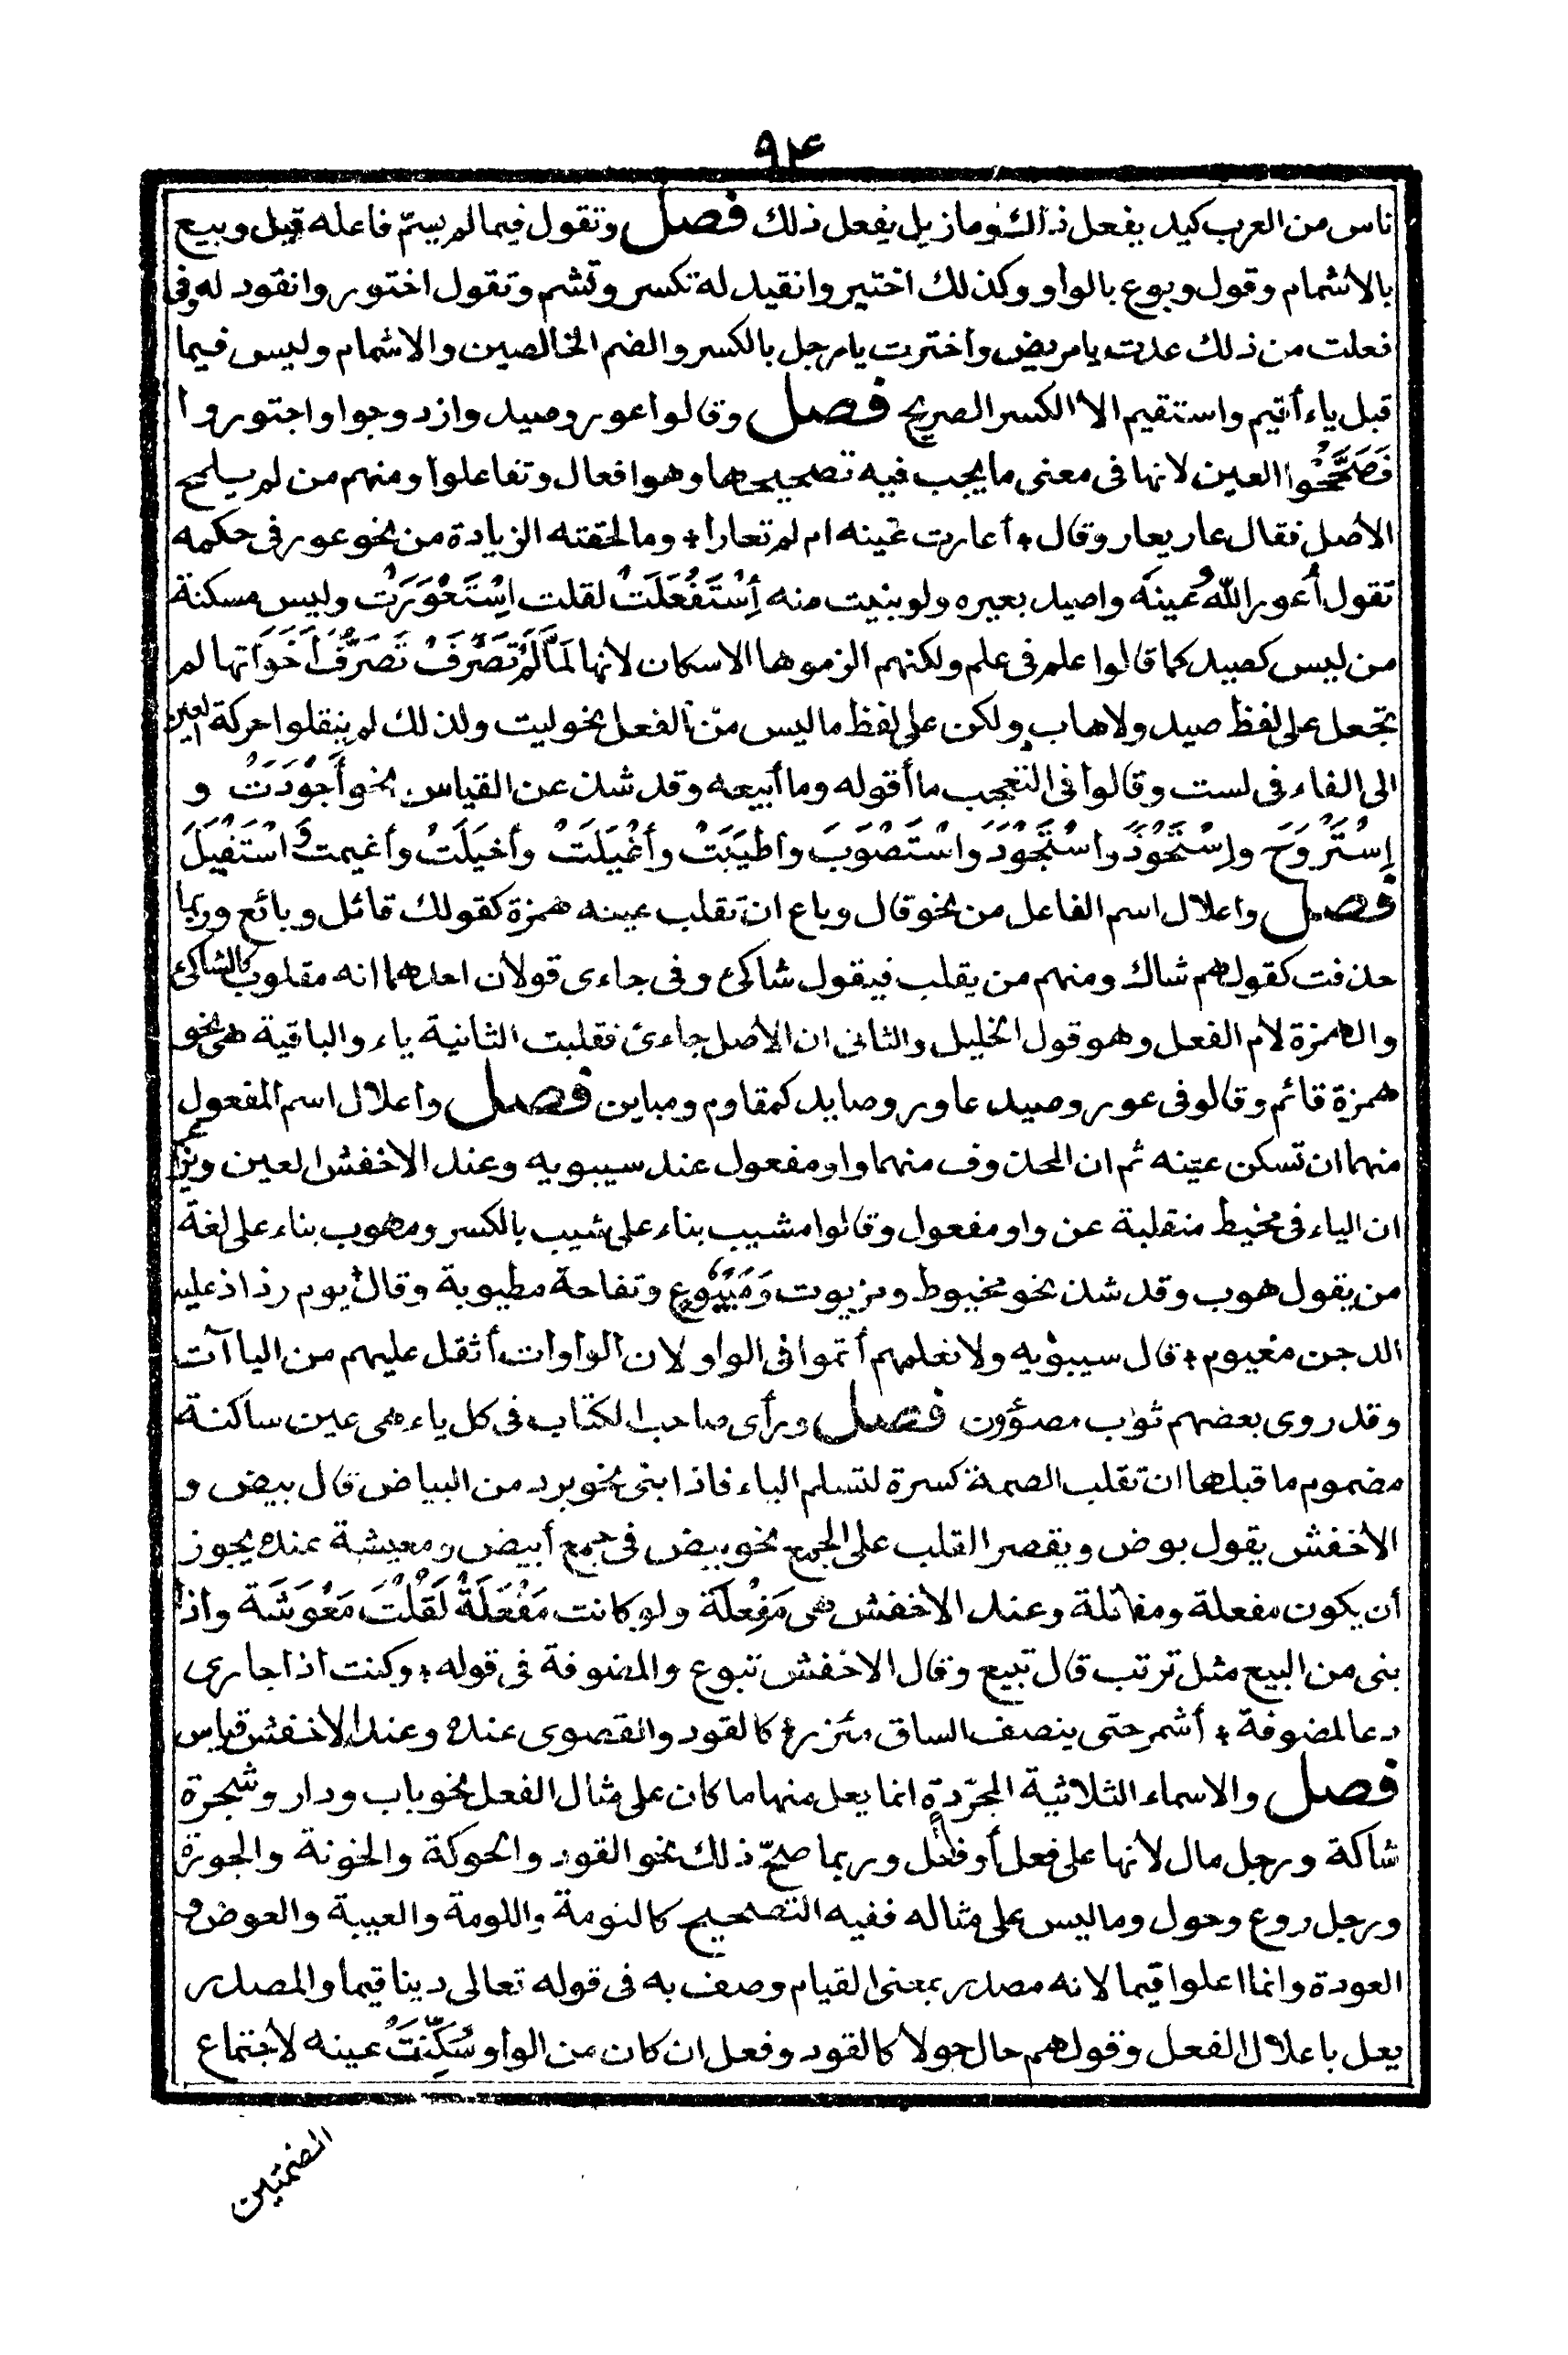 ۹۴
ناس من العرب كيد يفعل ذلك وما زيل يفعل ذلك فصل وتقول فيما لم يسمّ فاعله قيل وبيع
بالأشمام وقول وبوع بالواو وكذلك اختير وانقيد له تكسر وتشم وتقول اختور وانقود له وفى
فعلت من ذلك عدت يا مريض وأخترت يا رجل بالكسر والضم الخالصين والاشمام وليس فيما
قبل ياء أقيم واستقيم الا الكسر الصريح فصل وقالوا عور وصيد وازدوجوا واجتوروا
فَصَحَّحُوا العين لانها فى معنى ما يجب فيه تصحيحها وهو افعال وتفاعلوا ومنهم من لم يلمح
الأصل فقال عار يعار وقال ؞ أعارت عينه ام لم تعارا ؞ وما لحقته الزيادة من نحو عور فى حكمه
تقول أعور اللّٰه عينَه واصيد بعيره ولو بنيت منه اِسْتَفْعَلَتْ لقلت اِسْتَعْوَرَتْ وليس مسكنة
من ليس كصيد كما قالوا علم فى علم ولكنهم الزموها الاسكان لأنها لَمَّا لَمْ تَصَرَّفْ تَصَرُّفَ أَخَوَاتها لم
تجعل على لفظ صيد ولا هاب ولكن على لفظ ما ليس من الفعل نحو ليت ولذلك لم ينقلوا حركة العين
الى الفاء فى لست وقالوا فى التعجب ما أقوله وما أبيعه وقد شذ عن القياس نحو أَجْوَدَتْ و
اِسْتَرْوَحَ واِسْتَحْوَذَ واسْتَجْوَدَ واسْتَصْوَبَ وأَطْيَبَتْ وأَغْيَلَتْ وأَخْيَلَتْ وأغيمت وَاسْتَفْيَلَ
فصل واعلال اسم الفاعل من نحو قال وباع ان تقلب عينه همزة كقولك قائل وبائع وربما
حذفت كقولهم شاك ومنهم من يقلب فيقول شاكى وفى جاءى قولان احدهما انه مقلوب كالشاكى
والهمزة لام الفعل وهو قول الخليل والثانى ان الأصل جاءئ فقلبت الثانية ياء والباقية هى نحو
همزة قائم وقالو فى عور وصيد عاور وصايد كمقاوم ومباين فصل واعلال اسم المفعول
منهما ان تسكن عينه ثم ان المحذوف منهما واو مفعول عند سيبويه وعند الاخفش العين ويزعم
ان الياء فى مخيط منقلبة عن واو مفعول وقالوا مشيب بناء على شيب بالكسر ومهوب بناء على لغة
من يقول هوب وقد شذ نحو مخيوط ومزيوت وَمَبْيُوع وتفاحة مطيوبة وقال ؞ يوم رذاذ عليه
الدجن مغيوم ؞ قال سيبويه ولا نعلمهم أتموا فى الواو لان الواوات أثقل عليهم من الياآت
وقد روى بعضهم ثوب مصؤون فصل ورأى صاحب الكتاب فى كل ياء هى عين ساكنة
مضموم ما قبلها ان تقلب الضمة كسرة لتسلم الياء فاذا بنى نحو برد من البياض قال بيض و
الأخفش يقول بوض ويقصر القلب على الجمع نحو بيض فى جمع أبيض ومعيشة عنده يجوز
أن يكون مفعلة ومفعلة وعند الاخفش هى مَفِعْلَة ولو كانت مَفْعَلَةً لَقُلْتَ مَعْوَشَة واذا
بنى من البيع مثل ترتب قال تبيع وقال الاخفش تبوع والمضوفة فى قوله ؞ وكنت اذا جارى
دعا لمضوفة ؞ أشمر حتى ينصف الساق مئزرى ؞ كالقود والقصوى عنده وعند الاخفش قياس
فصل والاسماء الثلاثية المجرّدة انما يعل منها ما كان على مثال الفعل نحو باب ودار وشجرة
شاكة ورجل مال لأنها على فعل أو فعل وربما صحّ ذلك نحو القود والحوكة والخونة والجورة
ورجل روع وحول وما ليس على مثاله ففيه التصحيح كالنومة واللومة والعيبة والعوض و
العودة وانما اعلوا قيما لانه مصدر بمعنى القيام وصف به فى قوله تعالى دينا قيما والمصدر
يعل باعلال الفعل وقولهم حال حولا كالقود وفعل ان كان من الواو سُكِّنَتْ عينه لأجتماع
الضمتين